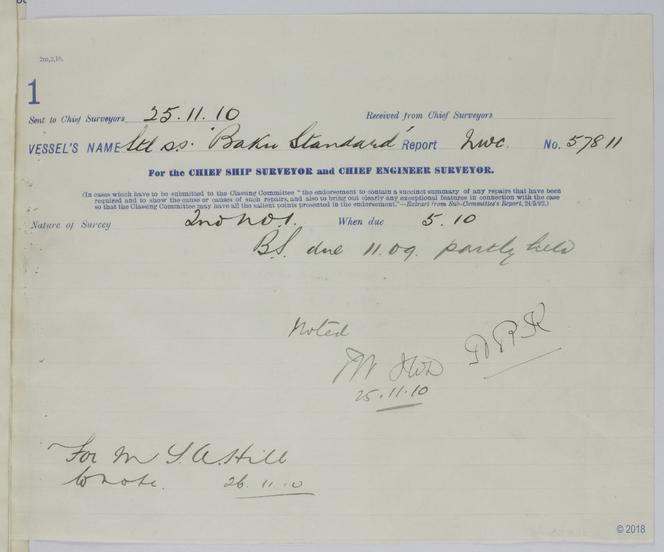 2m,2,10.
1
Sent to Chief Surveyors 25.11.10 Received from Chief Surveyors
VESSEL'S NAME Stl ss. "Baku Standard" Report Nwc. No. 57811
For the CHIEF SHIP SURVEYOR and CHIEF ENGINEER SURVEYOR.
(In cases which have to be submitted to the Classing Committee "the endorsement to contain a succinct summary of any repairs that have been
required and to show the cause or causes of such repairs, and also to bring out clearly any exceptional features in connection with the case
so that the Classing Committee may have all the salient points presented in the endorsement."—Extract from Sub-Committee's Report, 24/5/92.)
Nature of Survey 2nd No 1. When due 5.10
B.S. due 11.09. partly held
Noted
25.11.10
For M S.A. Hill
to note. 26.11.10
© 2018